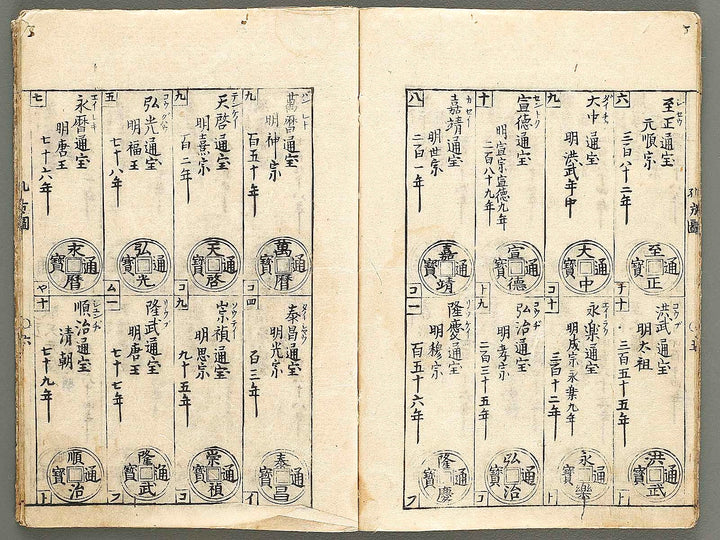 六
シセウ
至正通宝
元順宗
三百八十二年
至正通寳
チ十
コウブ
洪武通宝
明太祖
三百五十五年
洪武通寳
ト
九
大中通宝
明洪武年中
大中通寳
コ十
永楽通宝
明成宗永楽九年
三百十二年
永樂通寳
ト
十
セントク
宣德通宝
明宣宗宣德九年
二百八十九年
宣德通寳
ト九
弘治通宝
明孝宗
二百三十五年
弘治通寳
八
カセイ
嘉靖通宝
明世宗
二百一年
嘉靖通寳
隆慶通宝
明穆宗
百五十六年
隆慶通寳
九
萬暦通宝
明神宗
百五十年
萬暦通寳
コ四
泰昌通宝
明光宗
百三年
泰昌通寳
イ
九
テンケイ
天啓通宝
明熹宗
百二年
天啓通寳
コ九
崇禎通宝
明思宗
九十五年
崇禎通寳
コ
五
弘光通宝
明福王
七十八年
弘光通寳
ム一
隆武通宝
明唐王
七十七年
隆武通寳
フ
七
永暦通宝
明唐王
七十六年
永暦通寳
ヤ十
順治通宝
清朝
七十九年
順治通寳
ト